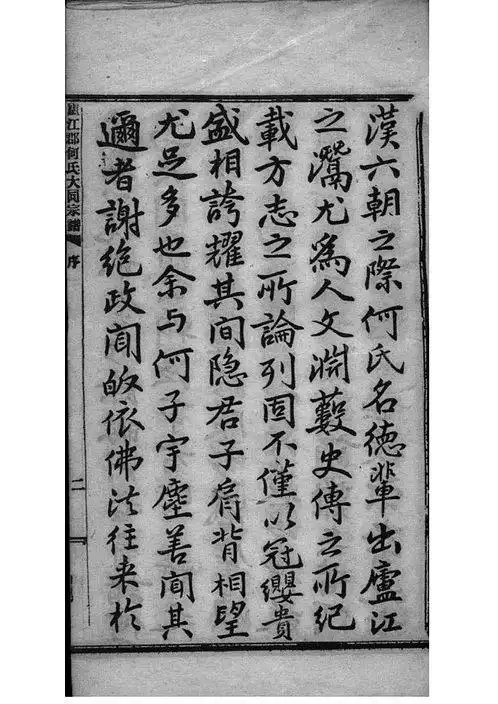 漢六朝之際何氏名德輩出廬江
之灊尤爲人文淵藪史傳之所紀
載方志之所論列固不僅以冠纓貴
盛相誇耀其間隐君子肩背相望
尤足多也余与何子宇塵善聞其
邇者謝絶政聞皈依佛法往来於
廬江郡何氏大同宗譜 序 二